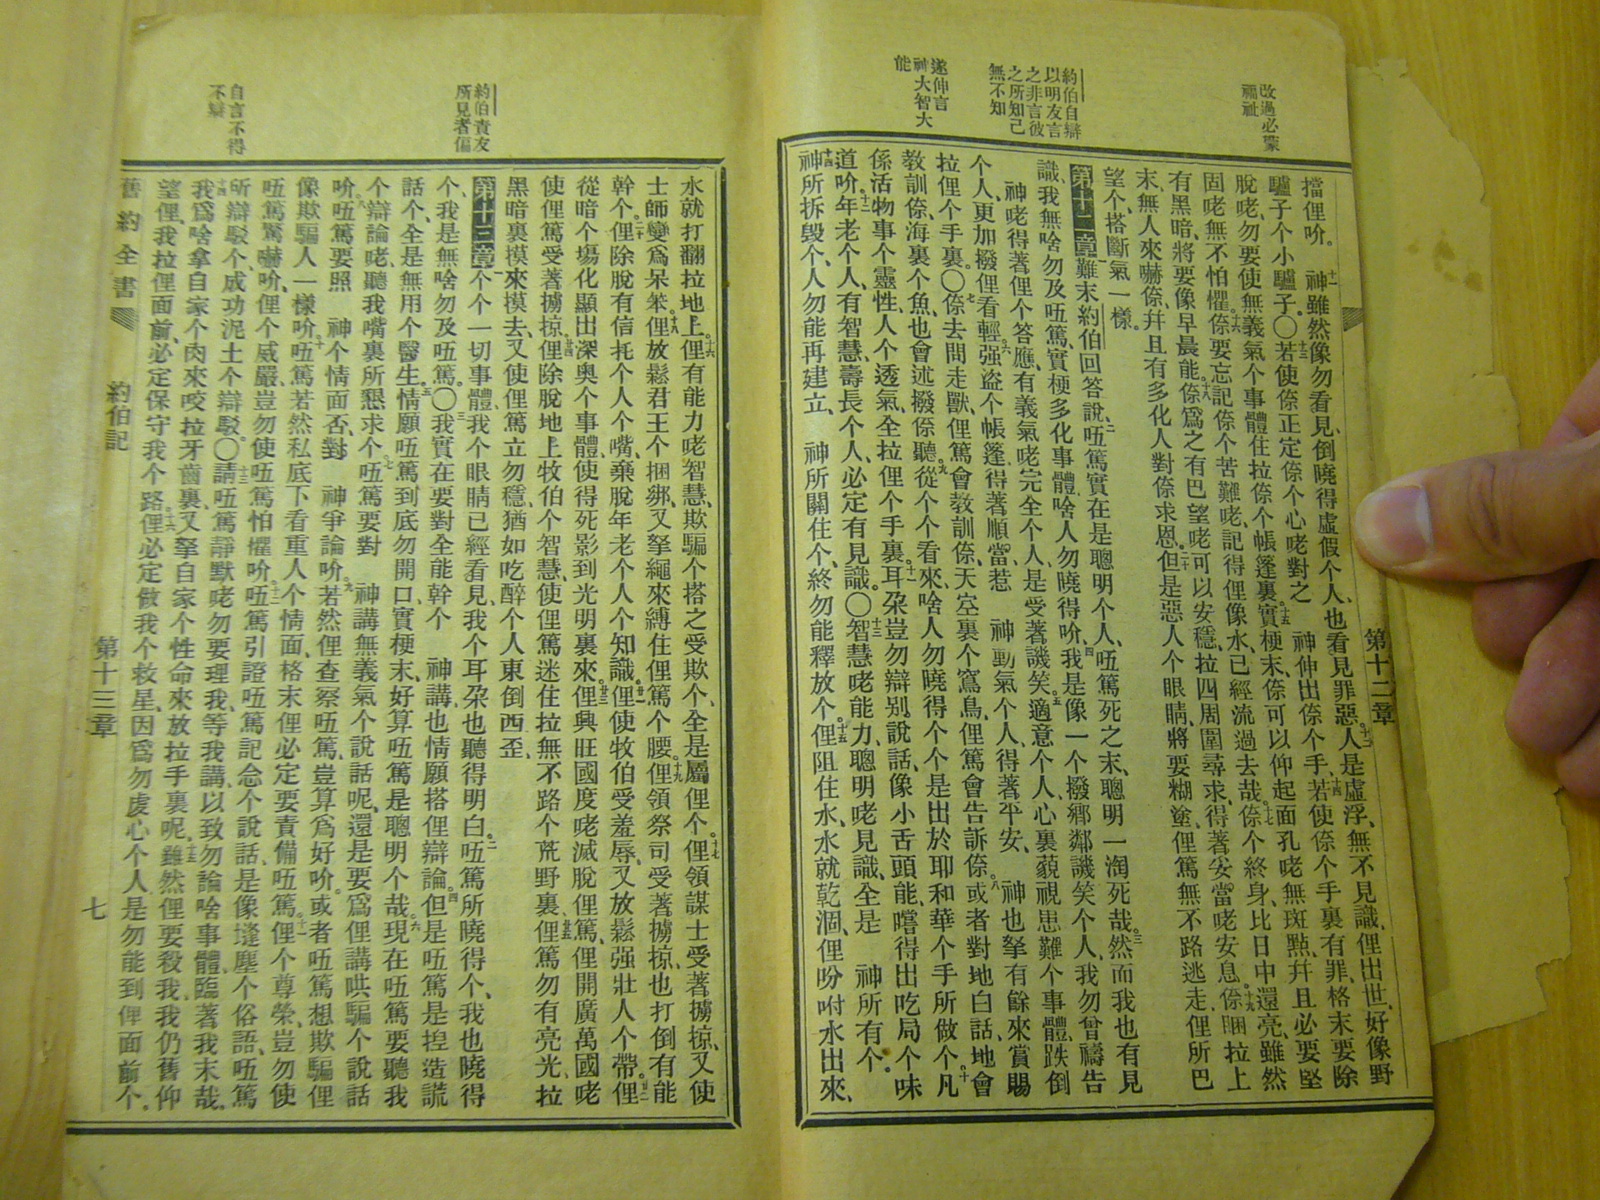 改過必蒙
福祉
約伯自辯
以明友言
之非言彼
之所知己
無不知
遂伸言
神大智大
能
第十二章
擋俚吤。十一 神雖然像勿看見、倒曉得虛假个人、也看見罪惡。十二人是虛浮、無不見識、俚出世、好像野
驢子个小驢子。〇十三若使倷正定倷个心咾對之 神伸出倷个手、十四若使倷个手裏有罪、格末要除
脫咾、勿要使無義氣个事體住拉倷个帳篷裏、十五實梗末、倷可以仰起面孔咾無斑點、幷且必要堅
固咾無不怕懼。十六倷要忘記倷个苦難咾、記得俚像水、已經流過去哉。十七倷个終身、比日中還亮、雖然
有黑暗、將要像早晨能。十八倷爲之有巴望咾可以安穩、拉四周圍尋求、得著妥當咾安息。十九倷睏拉上
末、無人來嚇倷、幷且有多化人對倷求恩。二十但是惡人个眼睛將要糊塗、俚篤無不路逃走、俚所巴
望个、搭斷氣一樣。
第十二章難末約伯回答說、二唔篤實在是聰明个人、唔篤死之末、聰明一淘死哉。三然而我也有見
識、我無啥勿及唔篤、實梗多化事體、啥人勿曉得吤。四我是像一个撥鄉鄰譏笑个人、我勿曾禱告
神咾得著俚个答應、有義氣咾完全个人、是受著譏笑。五適意个人、心裏藐視患難个事體、跌倒
个人、更加撥俚看輕。六强盜个帳篷得著順當、惹 神動氣个人、得著平安、 神也拏有餘來賞賜
拉俚个手裏。〇七倷去問走獸、俚篤會教訓倷、天空裏个窩鳥、俚篤會告訴倷。八或者對地白話、地會
教訓倷、海裏个魚、也會述撥倷聽。九從个个看來、啥人勿曉得个个是出於耶和華个手所做个。十凡
係活物事个靈性、人个透氣、全拉俚个手裏。十一耳朶豈勿辯別說話、像小舌頭能、嚐得出吃局个味
道吤。十二年老个人、有智慧、壽長个人、必定有見識。〇十三智慧咾能力、聰明咾見識、全是 神所有个。
十四神所拆毀个、人勿能再建立、 神所關住个、終勿能釋放个。十五俚阻住水、水就乾涸、俚吩咐水出來、
約伯責友
所見者偏
自言不得
不辯
水就打翻拉地上。十六俚有能力咾智慧、欺騙个搭之受欺个、全是屬俚个。十七俚領謀士受著擄掠、又使
士師變爲呆笨。十八俚放鬆君王个捆綁、又拏繩來縛住俚篤个腰。十九俚領祭司受著擄掠、也打倒有能
幹个。二十俚除脫有信托个人个嘴、棄脫年老个人个知識。廿一俚使牧伯受羞辱、又放鬆强壯人个帶。廿二俚
從暗个塲化顯出深奧个事體、使得死影到光明裏來。廿三俚興旺國度咾滅脫俚篤、俚開廣萬國咾
使俚篤受著擄掠。廿四俚除脫地上牧伯个智慧、使俚篤迷住拉無不路个荒野裏。廿五俚篤勿有亮光、拉
黑暗裏摸來摸去、又使俚篤立勿穩、猶如吃醉个人東倒西歪、
第十三章一个个一切事體、我个眼睛已經看見、我个耳朶也聽得明白。二唔篤所曉得个、我也曉得
个、我是無啥勿及唔篤。〇三我實在要對全能幹个 神講、也情願搭俚辯論。四但是唔篤是揑造謊
話个、全是無用个醫生。五情願唔篤到底勿開口、實梗末、好算唔篤是聰明个哉。六現在唔篤要聽我
个辯論咾、聽我嘴裏所懇求个。七唔篤要對 神講無義氣个說話呢、還是要爲俚講哄騙个說話
吤。八唔篤要照 神个情面否、對 神爭論吤。九若然俚查察唔篤、豈算爲好吤。或者唔篤想欺騙俚
像欺騙人一樣吤。十唔篤若然私底下看重人个情面、格末俚必定要責備唔篤。十一俚个尊榮、豈勿使
唔篤驚嚇吤、俚个威嚴、豈勿使唔篤怕懼吤。十二唔篤引證唔篤記念个說話、是像塳塵个俗語、唔篤
所辯駁个成功泥土个辯駁。〇十三請唔篤靜默咾勿要理我、等我講、以致勿論啥事體臨著我末哉。
十四我爲啥拿自家个肉來咬拉牙齒裏、又拏自家个性命來放拉手裏呢。十五雖然俚要殺我、我仍舊仰
望俚、我拉俚面前、必定保守我个路。十六俚必定做我个救星、因爲勿虔心个人、是勿能到俚面前个。
舊約全書
約伯記
第十三章
七